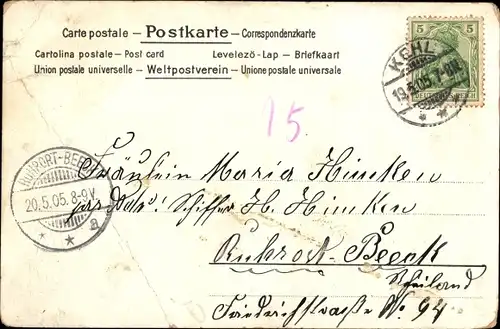 Carte postale – Postkarte – Correspondenzkarte
Cartolina postale – Post card Levelező-Lap – Briefkaart
Union postale universelle – Weltpostverein – Unione postale universale
5 5
DEUTSCHES REICH
KEHL
19.5.05. 7-8N.
15
RUHRORT-BEECK
20.5.05.8-9V.
* * a
Fräulein Maria Himken
per Adr. Schiffer H. Himken
Ruhrort-Beeck
Rheinland
Friedrichstraße No. 94